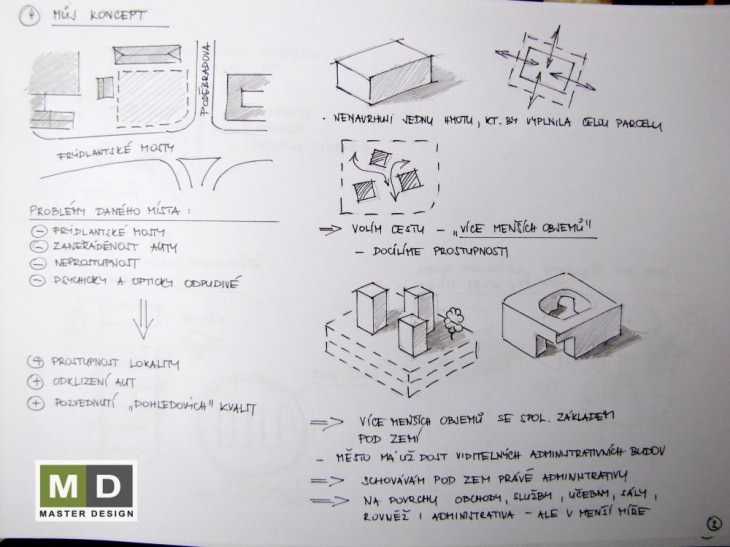 4 MŮJ KONCEPT
PODĚBRADOVA
FRÝDLANTSKÉ MOSTY
PROBLÉMY DANÉHO MÍSTA:
- FRÝDLANTSKÉ MOSTY
- ZANEŘÁDĚNOST AUTY
- NEPROSTUPNOST
- PSYCHICKY A OPTICKY ODPUDIVÉ
+ PROSTUPNOST LOKALITY
+ ODKLIZENÍ AUT
+ POZVEDNUTÍ „POHLEDOVÝCH" KVALIT
• NENAVRHUJI JEDNU HMOTU, KT. BY VYPLNILA CELOU PARCELU
⇒ VOLÍM CESTU – „VÍCE MENŠÍCH OBJEMŮ"
– DOCÍLÍME PROSTUPNOSTI
⇒ VÍCE MENŠÍCH OBJEMŮ SE SPOL. ZÁKLADEM
POD ZEMÍ
– MĚSTO MÁ UŽ DOST VIDITELNÝCH ADMINISTRATIVNÍCH BUDOV
⇒ SCHOVÁVÁM POD ZEM PRÁVĚ ADMINISTRATIVY
⇒ NA POVRCHU OBCHODY, SLUŽBY, UČEBNY, SÁLY,
ROVNĚŽ I ADMINISTRATIVA – ALE V MENŠÍ MÍŘE
2
MD
MASTER DESIGN